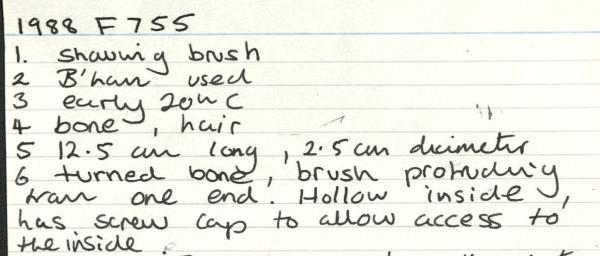 1988 F 755
1. shaving brush
2 B'ham used
3 early 20th C
4 bone, hair
5 12.5 cm long, 2.5 cm diameter
6 turned bone, brush protruding
from one end. Hollow inside,
has screw cap to allow access to
the inside.